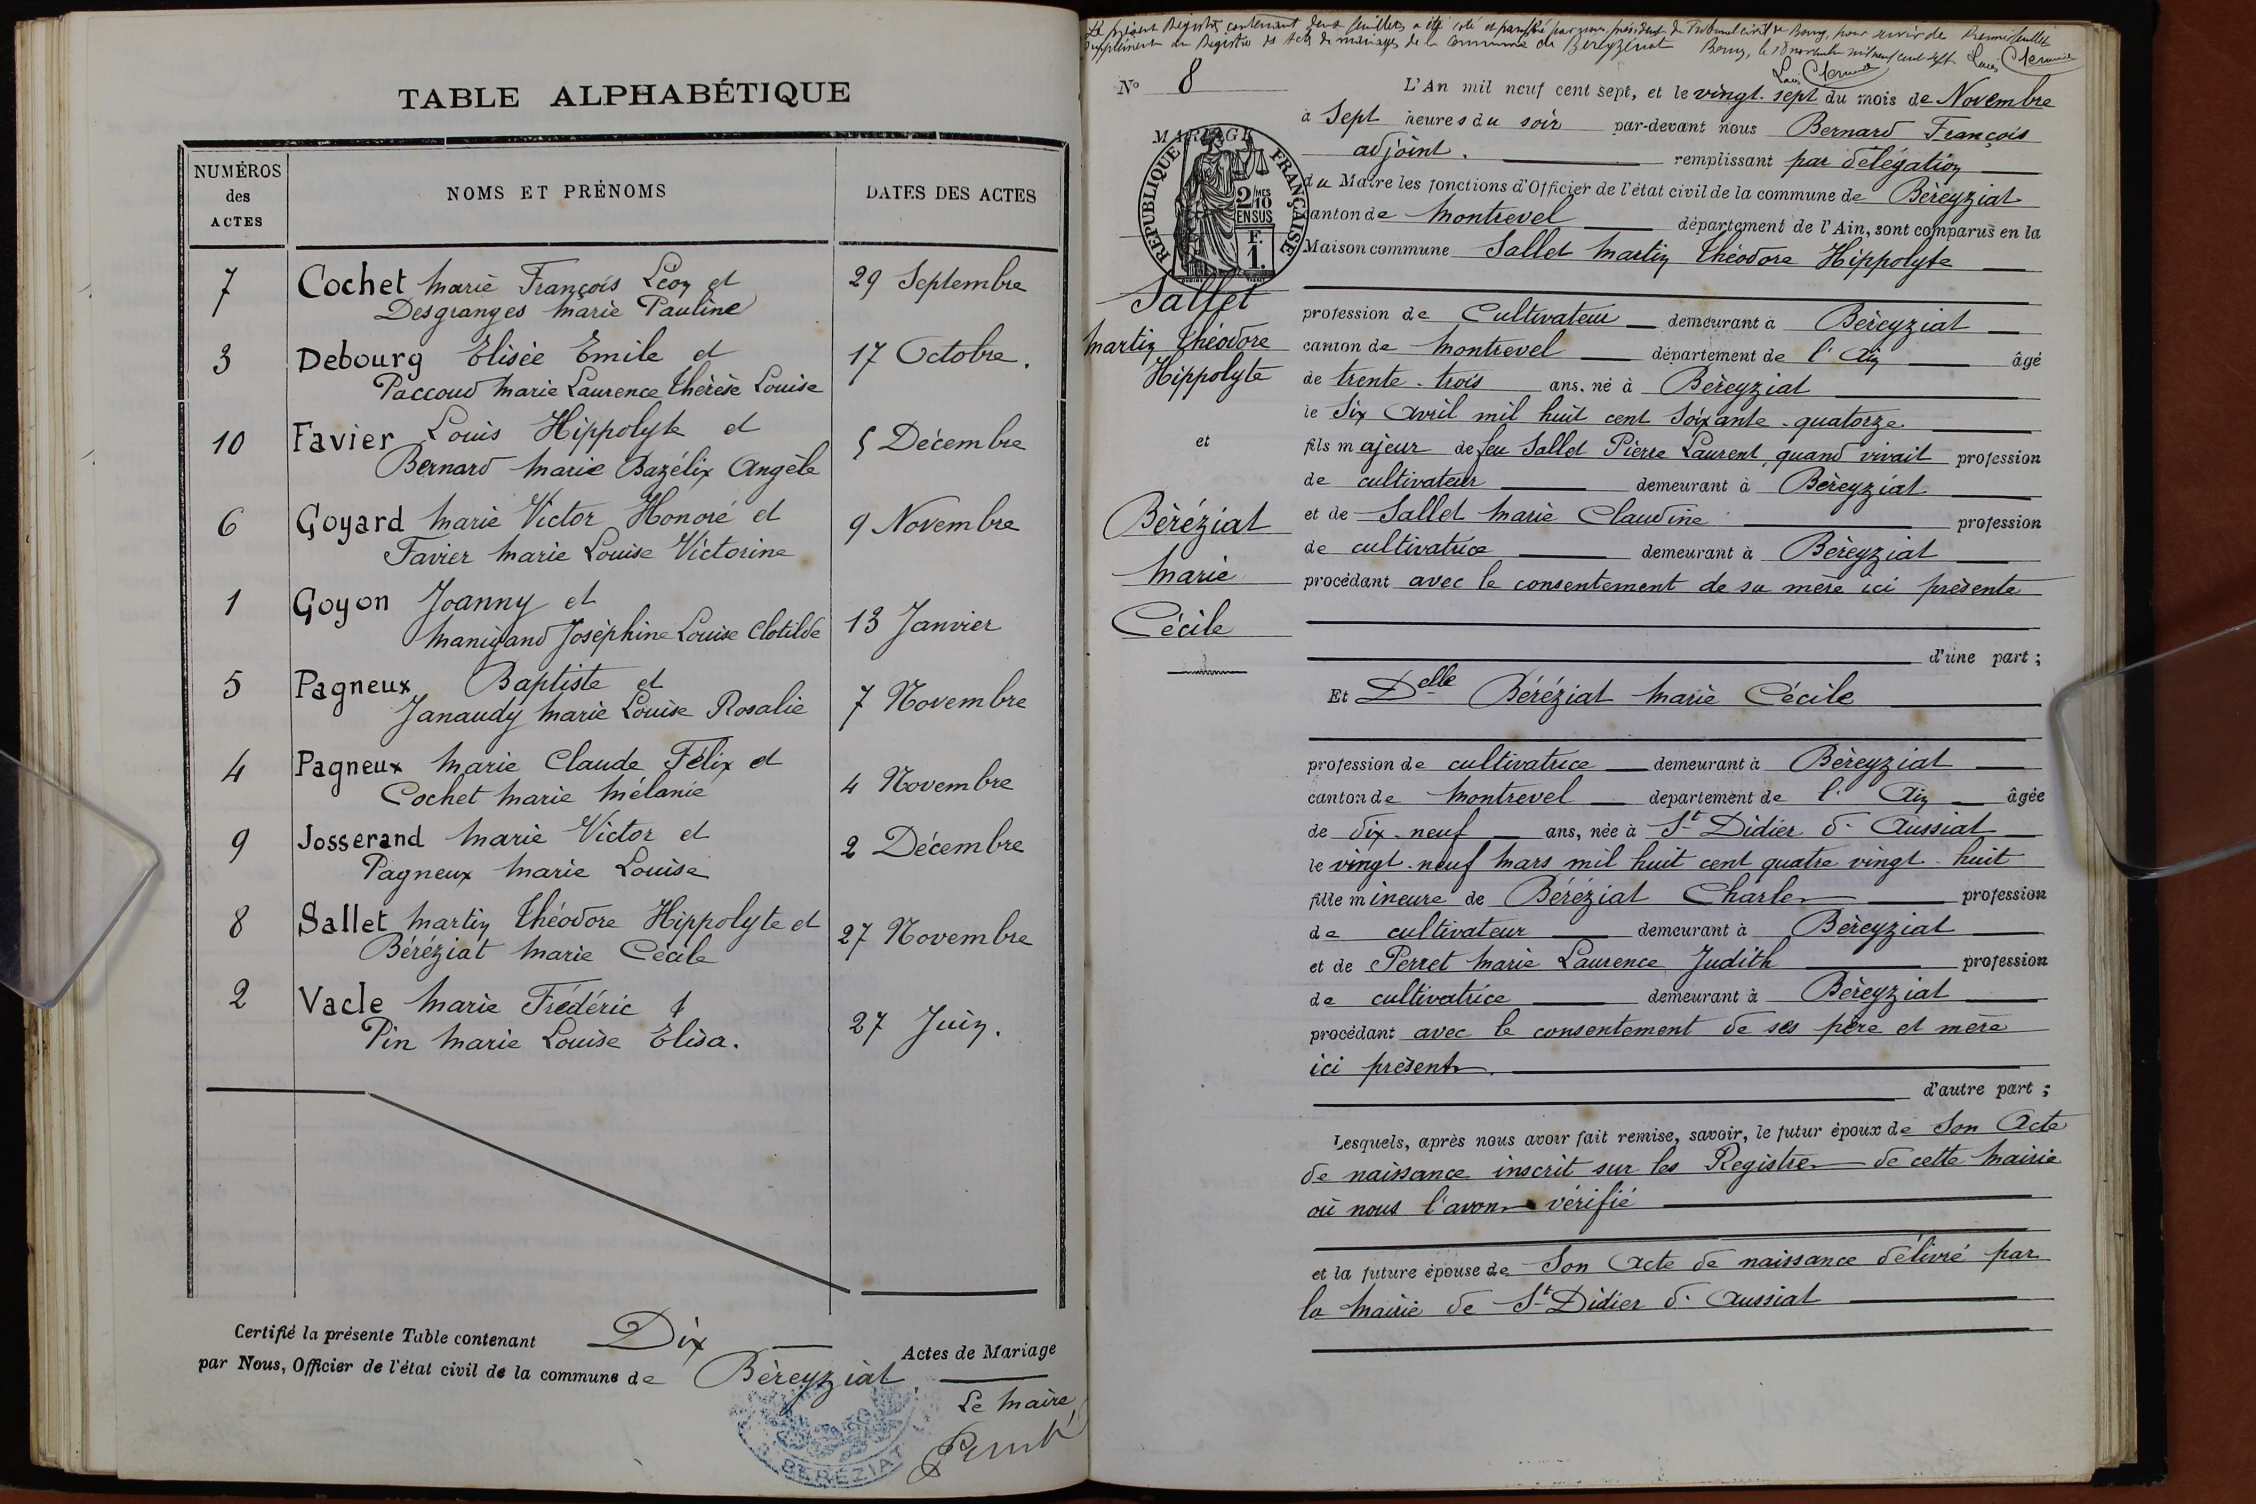 TABLE ALPHABÉTIQUE
NUMÉROS des ACTES
NOMS ET PRÉNOMS
DATES DES ACTES
7 Cochet Marie François Léon et 29 Septembre
Desgranges Marie Pauline
3 Debourg Elisée Emile et 17 Octobre.
Paccoud Marie Laurence Thérèse Louise
10 Favier Louis Hippolyte et 5 Décembre
Bernard Marie Bazélix Angèle
6 Goyard Marie Victor Honoré et 9 Novembre
Favier Marie Louise Victorine
1 Goyon Joanny et 13 Janvier
Manigand Joséphine Louise Clotilde
5 Pagneux Baptiste et 7 Novembre
Janaudy Marie Louise Rosalie
4 Pagneux Marie Claude Félix et 4 Novembre
Cochet Marie Mélanie
9 Josserand Marie Victor et 2 Décembre
Pagneux Marie Louise
8 Sallet Martin Théodore Hippolyte et 27 Novembre
Béréziat Marie Cécile
2 Vacle Marie Frédéric & 27 Juin.
Pin Marie Louise Elisa.
Certifié la présente Table contenant Dix Actes de Mariage
par Nous, Officier de l'état civil de la commune de Béreyziat
Le Maire,
BÉRÉZIAT
Le présent Registre contenant deux feuillets a été coté et paraphé par nous, président du Tribunal civil de Bourg, pour servir de Premier feuillet
supplément au Registre des Actes de mariages de la Commune de Béreyziat Bourg, le 18 novembre mil neuf cent sept.
No 8
MARIAGE
RÉPUBLIQUE FRANÇAISE
2/10 MES EN SUS
F. 1.
Sallet
Martin Théodore
Hippolyte
et
Béréziat
Marie
Cécile
L'An mil neuf cent sept, et le vingt-sept du mois de Novembre
à Sept heures du soir par-devant nous Bernard François
adjoint. remplissant par délégation
du Maire les fonctions d'Officier de l'état civil de la commune de Béreyziat
canton de Montrevel département de l'Ain, sont comparus en la
Maison commune Sallet Martin Théodore Hippolyte
profession de Cultivateur demeurant à Béreyziat
canton de Montrevel département de l'Ain âgé
de trente-trois ans, né à Béreyziat
le Six Avril mil huit cent soixante-quatorze
fils majeur de feu Sallet Pierre Laurent, quand vivait profession
de cultivateur demeurant à Béreyziat
et de Sallet Marie Claudine profession
de cultivatrice demeurant à Béreyziat
procédant avec le consentement de sa mère ici présente
d'une part ;
Et Delle Béréziat Marie Cécile
profession de cultivatrice demeurant à Béreyziat
canton de Montrevel département de l'Ain âgée
de dix-neuf ans, née à St Didier d'Aussiat
le vingt-neuf Mars mil huit cent quatre vingt-huit
fille mineure de Béréziat Charles profession
de cultivateur demeurant à Béreyziat
et de Perret Marie Laurence Judith profession
de cultivatrice demeurant à Béreyziat
procédant avec le consentement de ses père et mère
ici présents.
d'autre part ;
Lesquels, après nous avoir fait remise, savoir, le futur époux de Son Acte
de naissance inscrit sur les Registres de cette Mairie
où nous l'avons vérifié
et la future épouse de Son Acte de naissance délivré par
la Mairie de St Didier d'Aussiat